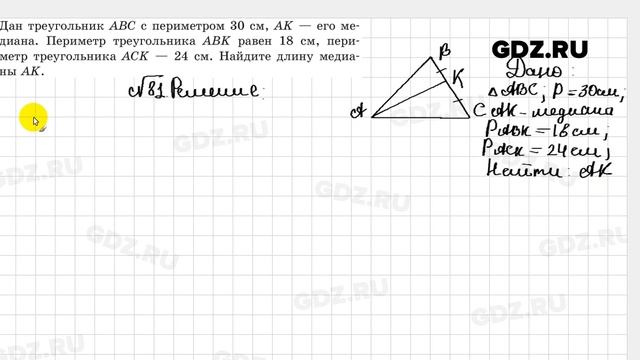 Дан треугольник ABC с периметром 30 см, AK — его ме-
диана. Периметр треугольника ABK равен 18 см, пери-
метр треугольника ACK — 24 см. Найдите длину медиа-
ны AK.
GDZ.RU
№81 Решение:
Дано:
△ABC; P=30см;
AK-медиана
PABK=18см;
PACK=24см;
Найти: AK
B
K
A
C
GDZ.RU
GDZ.RU
GDZ.RU
GDZ.RU
GDZ.RU
GDZ.RU
GDZ.RU